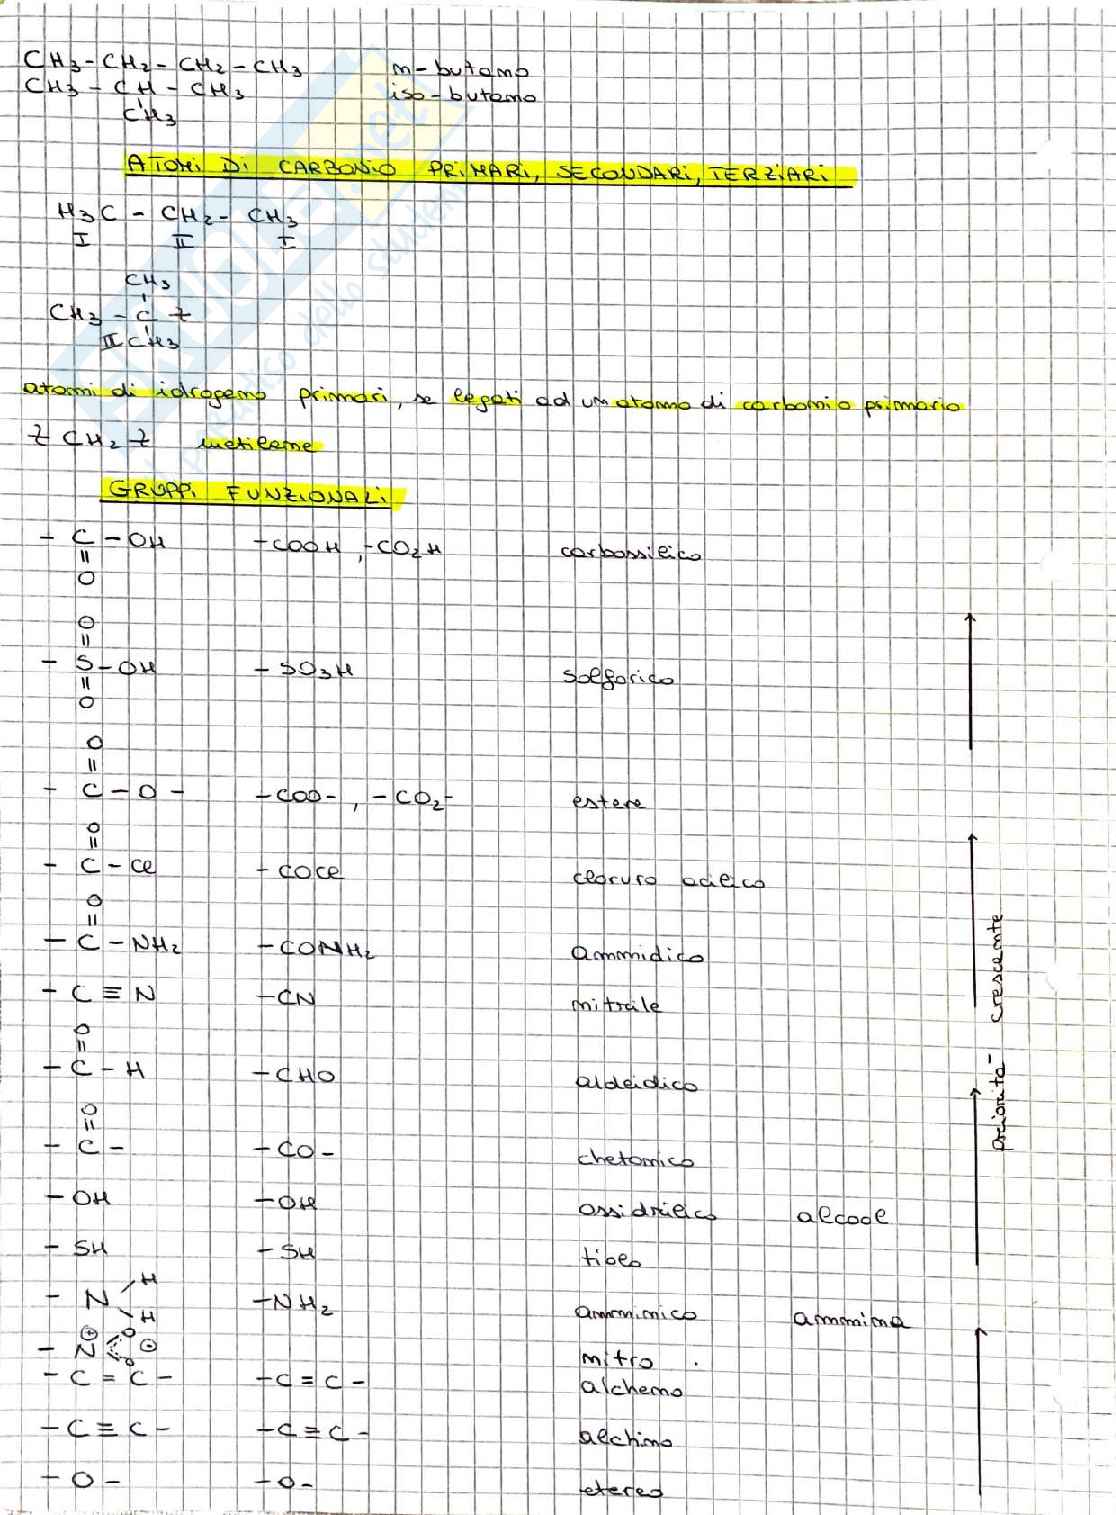 CH3-CH2-CH2-CH3 n-butano
CH3-CH-CH3 iso-butano
CH3
ATOMI DI CARBONIO PRIMARI, SECONDARI, TERZIARI
H3C - CH2 - CH3
I II I
CH3
CH3 - C
II CH3
atomi di idrogeno primari, se legati ad un atomo di carbonio primario
CH2 metilene
GRUPPI FUNZIONALI
- C - OH -COOH, -CO2H carbossilico
=
O
O
=
- S - OH - SO3H solforico
=
O
O
=
- C - O - -COO-, -CO2- estere
O
=
- C - Cl - COCl cloruro acilico
O
=
- C - NH2 -CONH2 ammidico
- C ≡ N -CN nitrile
O
=
- C - H -CHO aldeidico
O
=
- C - -CO- chetonico
- OH -OH ossidrilico alcool
- SH - SH tiolo
H
- N -NH2 amminico ammina
H
⊕ O
- N ⊖ nitro
O
- C = C - -C = C - alcheno
- C ≡ C - -C ≡ C - alchino
- O - -O- etereo
priorità crescente